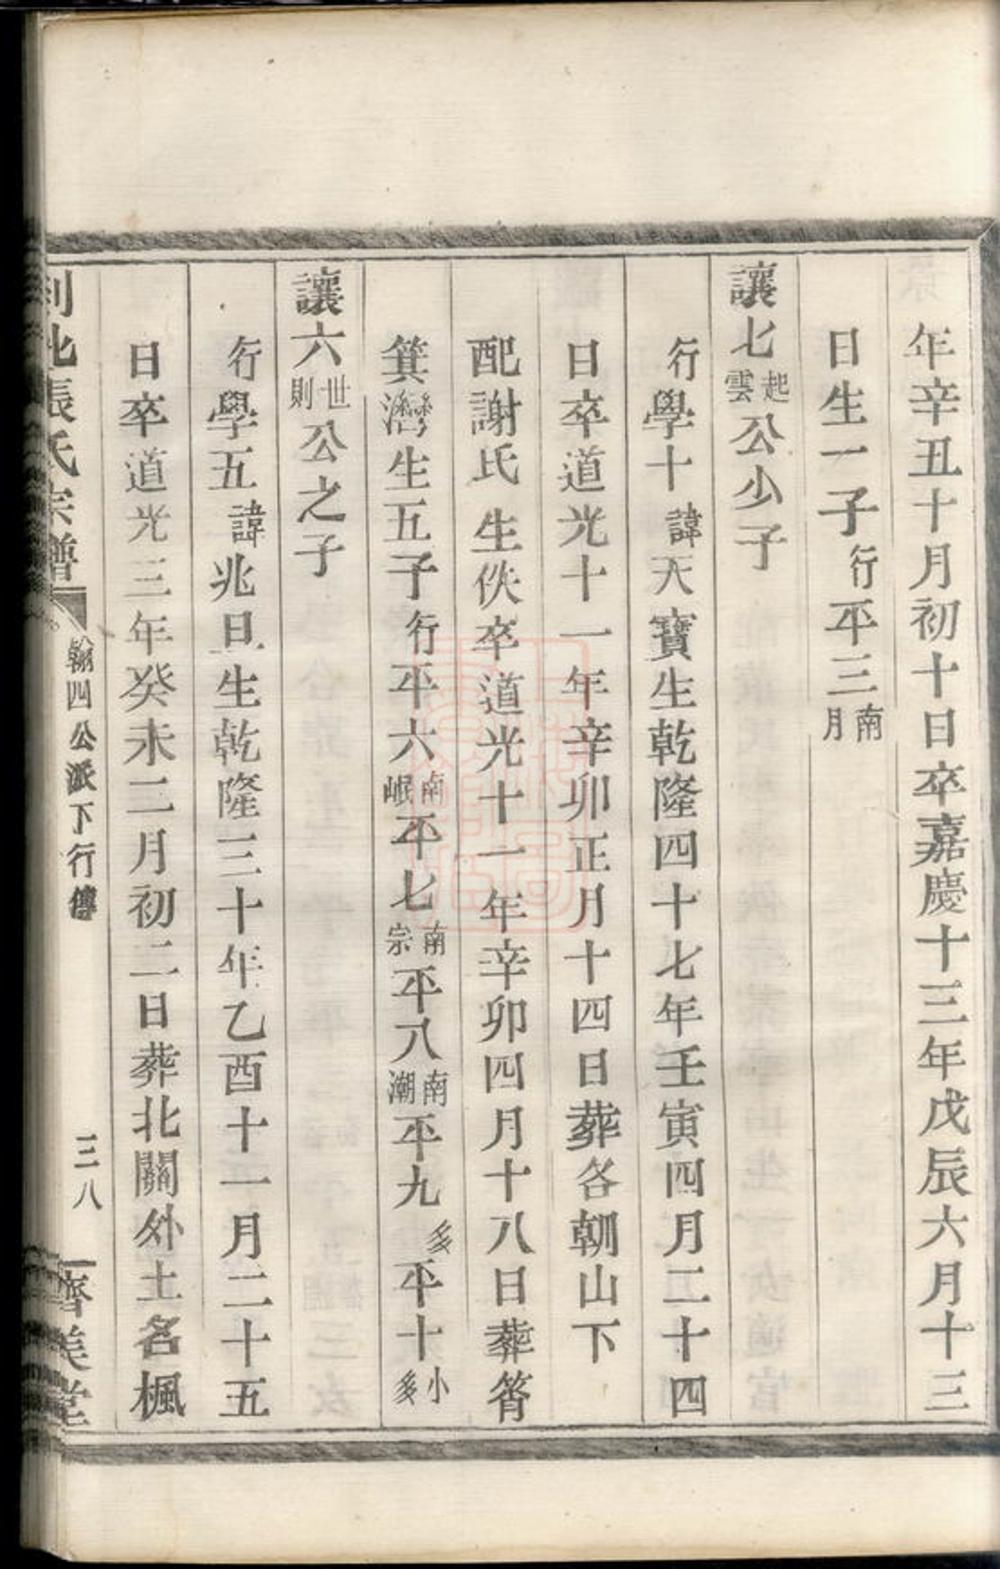 年辛丑十月初十日卒嘉慶十三年戊辰六月十三
日生一子行平三南月
讓七起雲公少子
行學十諱天寶生乾隆四十七年壬寅四月二十四
日卒道光十一年辛卯正月十四日葬各朝山下
配謝氏生佚卒道光十一年辛卯四月十八日葬筲
箕灣生五子行平六南岷平七南宗平八南潮平九多平十小多
讓六世則公之子
行學五諱兆日生乾隆三十年乙酉十一月二十五
日卒道光三年癸未二月初二日葬北關外土名楓
北張氏宗譜
翰四公派下行傳
三八
齊美堂